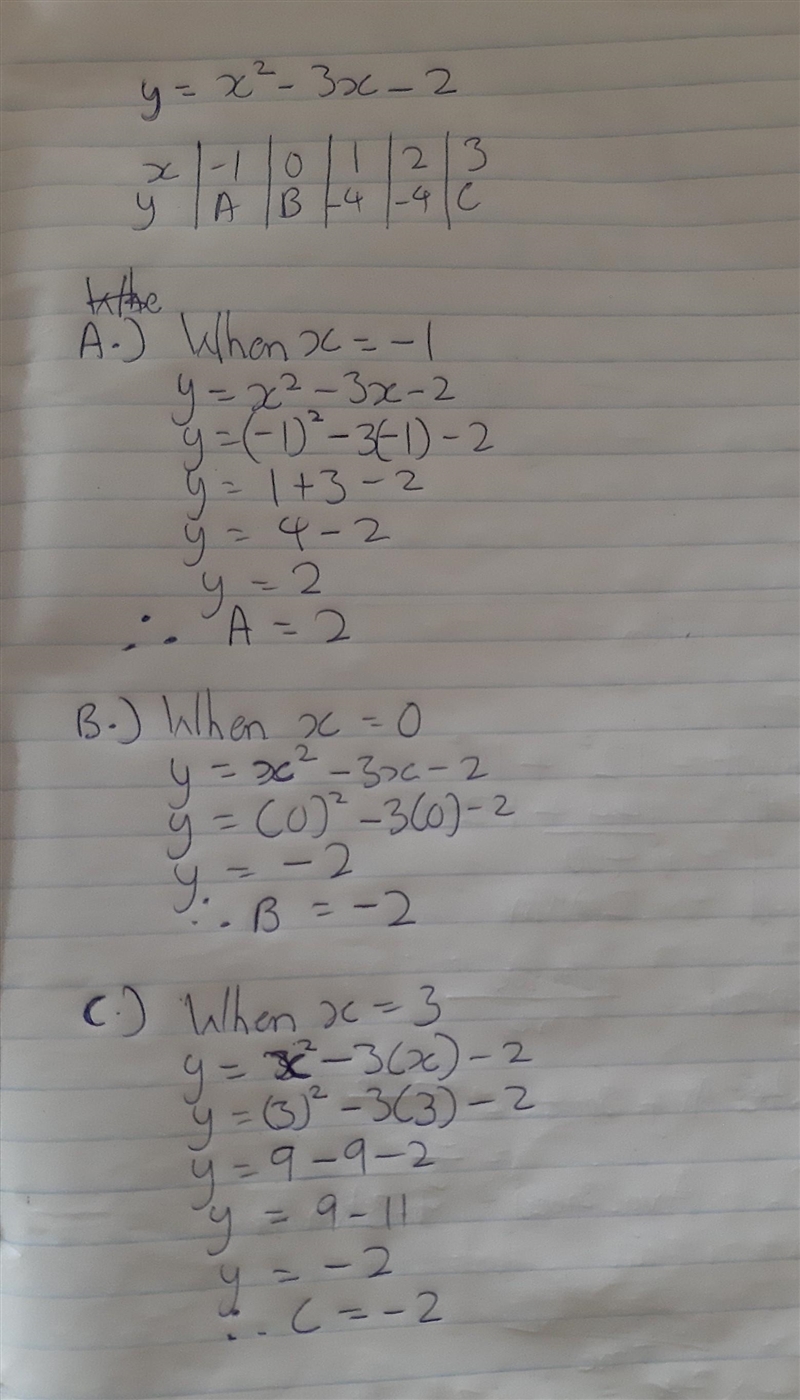 y = x² - 3x - 2
x | -1 | 0 | 1 | 2 | 3
y | A | B | -4 | -4 | C
A.) When x = -1
y = x² - 3x - 2
y = (-1)² - 3(-1) - 2
y = 1 + 3 - 2
y = 4 - 2
y = 2
∴ A = 2
B.) When x = 0
y = x² - 3x - 2
y = (0)² - 3(0) - 2
y = -2
∴ B = -2
C.) When x = 3
y = x² - 3(x) - 2
y = (3)² - 3(3) - 2
y = 9 - 9 - 2
y = 9 - 11
y = -2
∴ C = -2